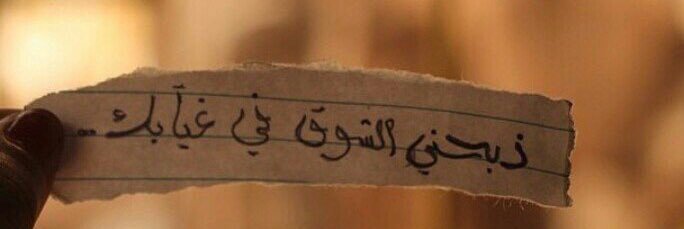 ذبحني الشوق في غيآبك..